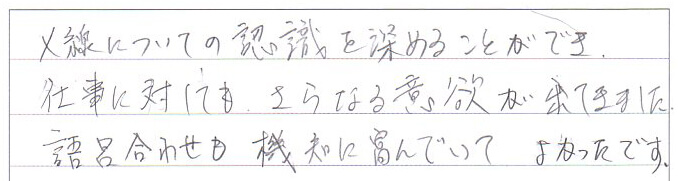 X線についての認識を深めることができ、
仕事に対しても、さらなる意欲が出てきました。
語呂合わせも機知に富んでいて よかったです。